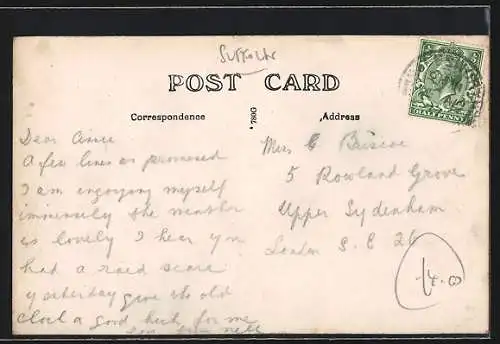 Suffolk
POST CARD
Correspondence
780G.
Address
HALF PENNY
Dear Cissie
A few lines as promised
I am engoying myself
imminsely the weather
is lovely I hear you
had a raid scare
yesterday give the old
a good for me
Miss C Briscoe
5 Rowland Grove
Upper Sydenham
London S. E 26
14.0